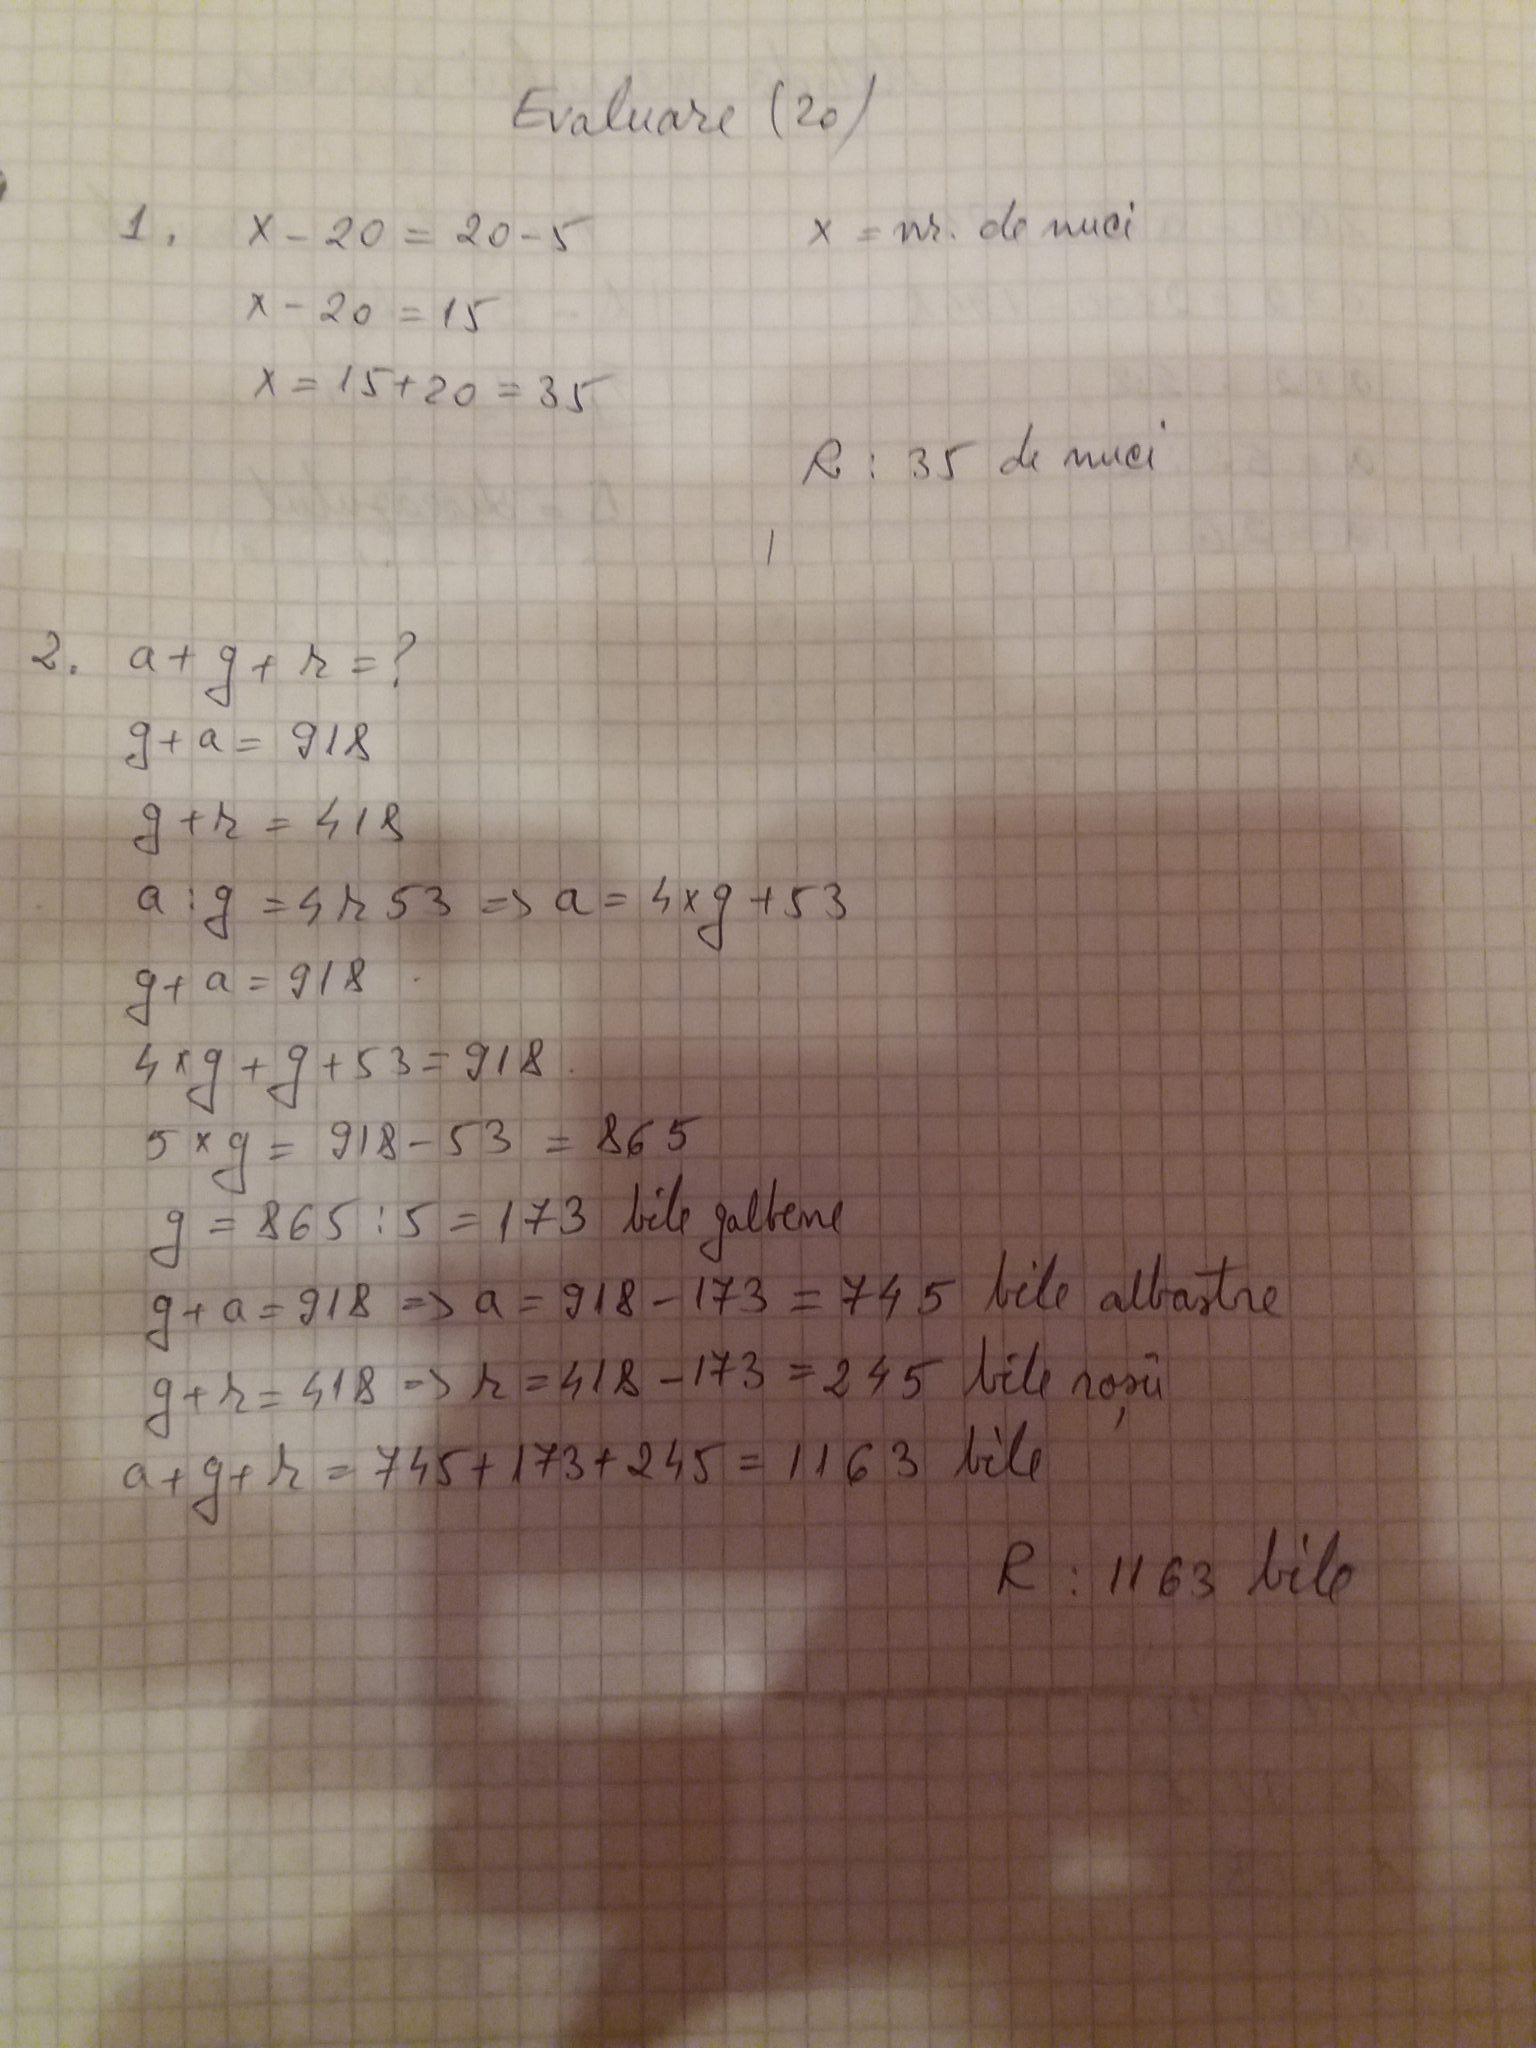 Evaluare (20)
1. x - 20 = 20 - 5
x = nr. de nuci
x - 20 = 15
x = 15 + 20 = 35
R : 35 de nuci
2. a + g + r = ?
g + a = 918
g + r = 418
a : g = 4 r 53 => a = 4 x g + 53
g + a = 918
4 x g + g + 53 = 918
5 x g = 918 - 53 = 865
g = 865 : 5 = 173 bile galbene
g + a = 918 => a = 918 - 173 = 745 bile albastre
g + r = 418 => r = 418 - 173 = 245 bile roșii
a + g + r = 745 + 173 + 245 = 1163 bile
R : 1163 bile